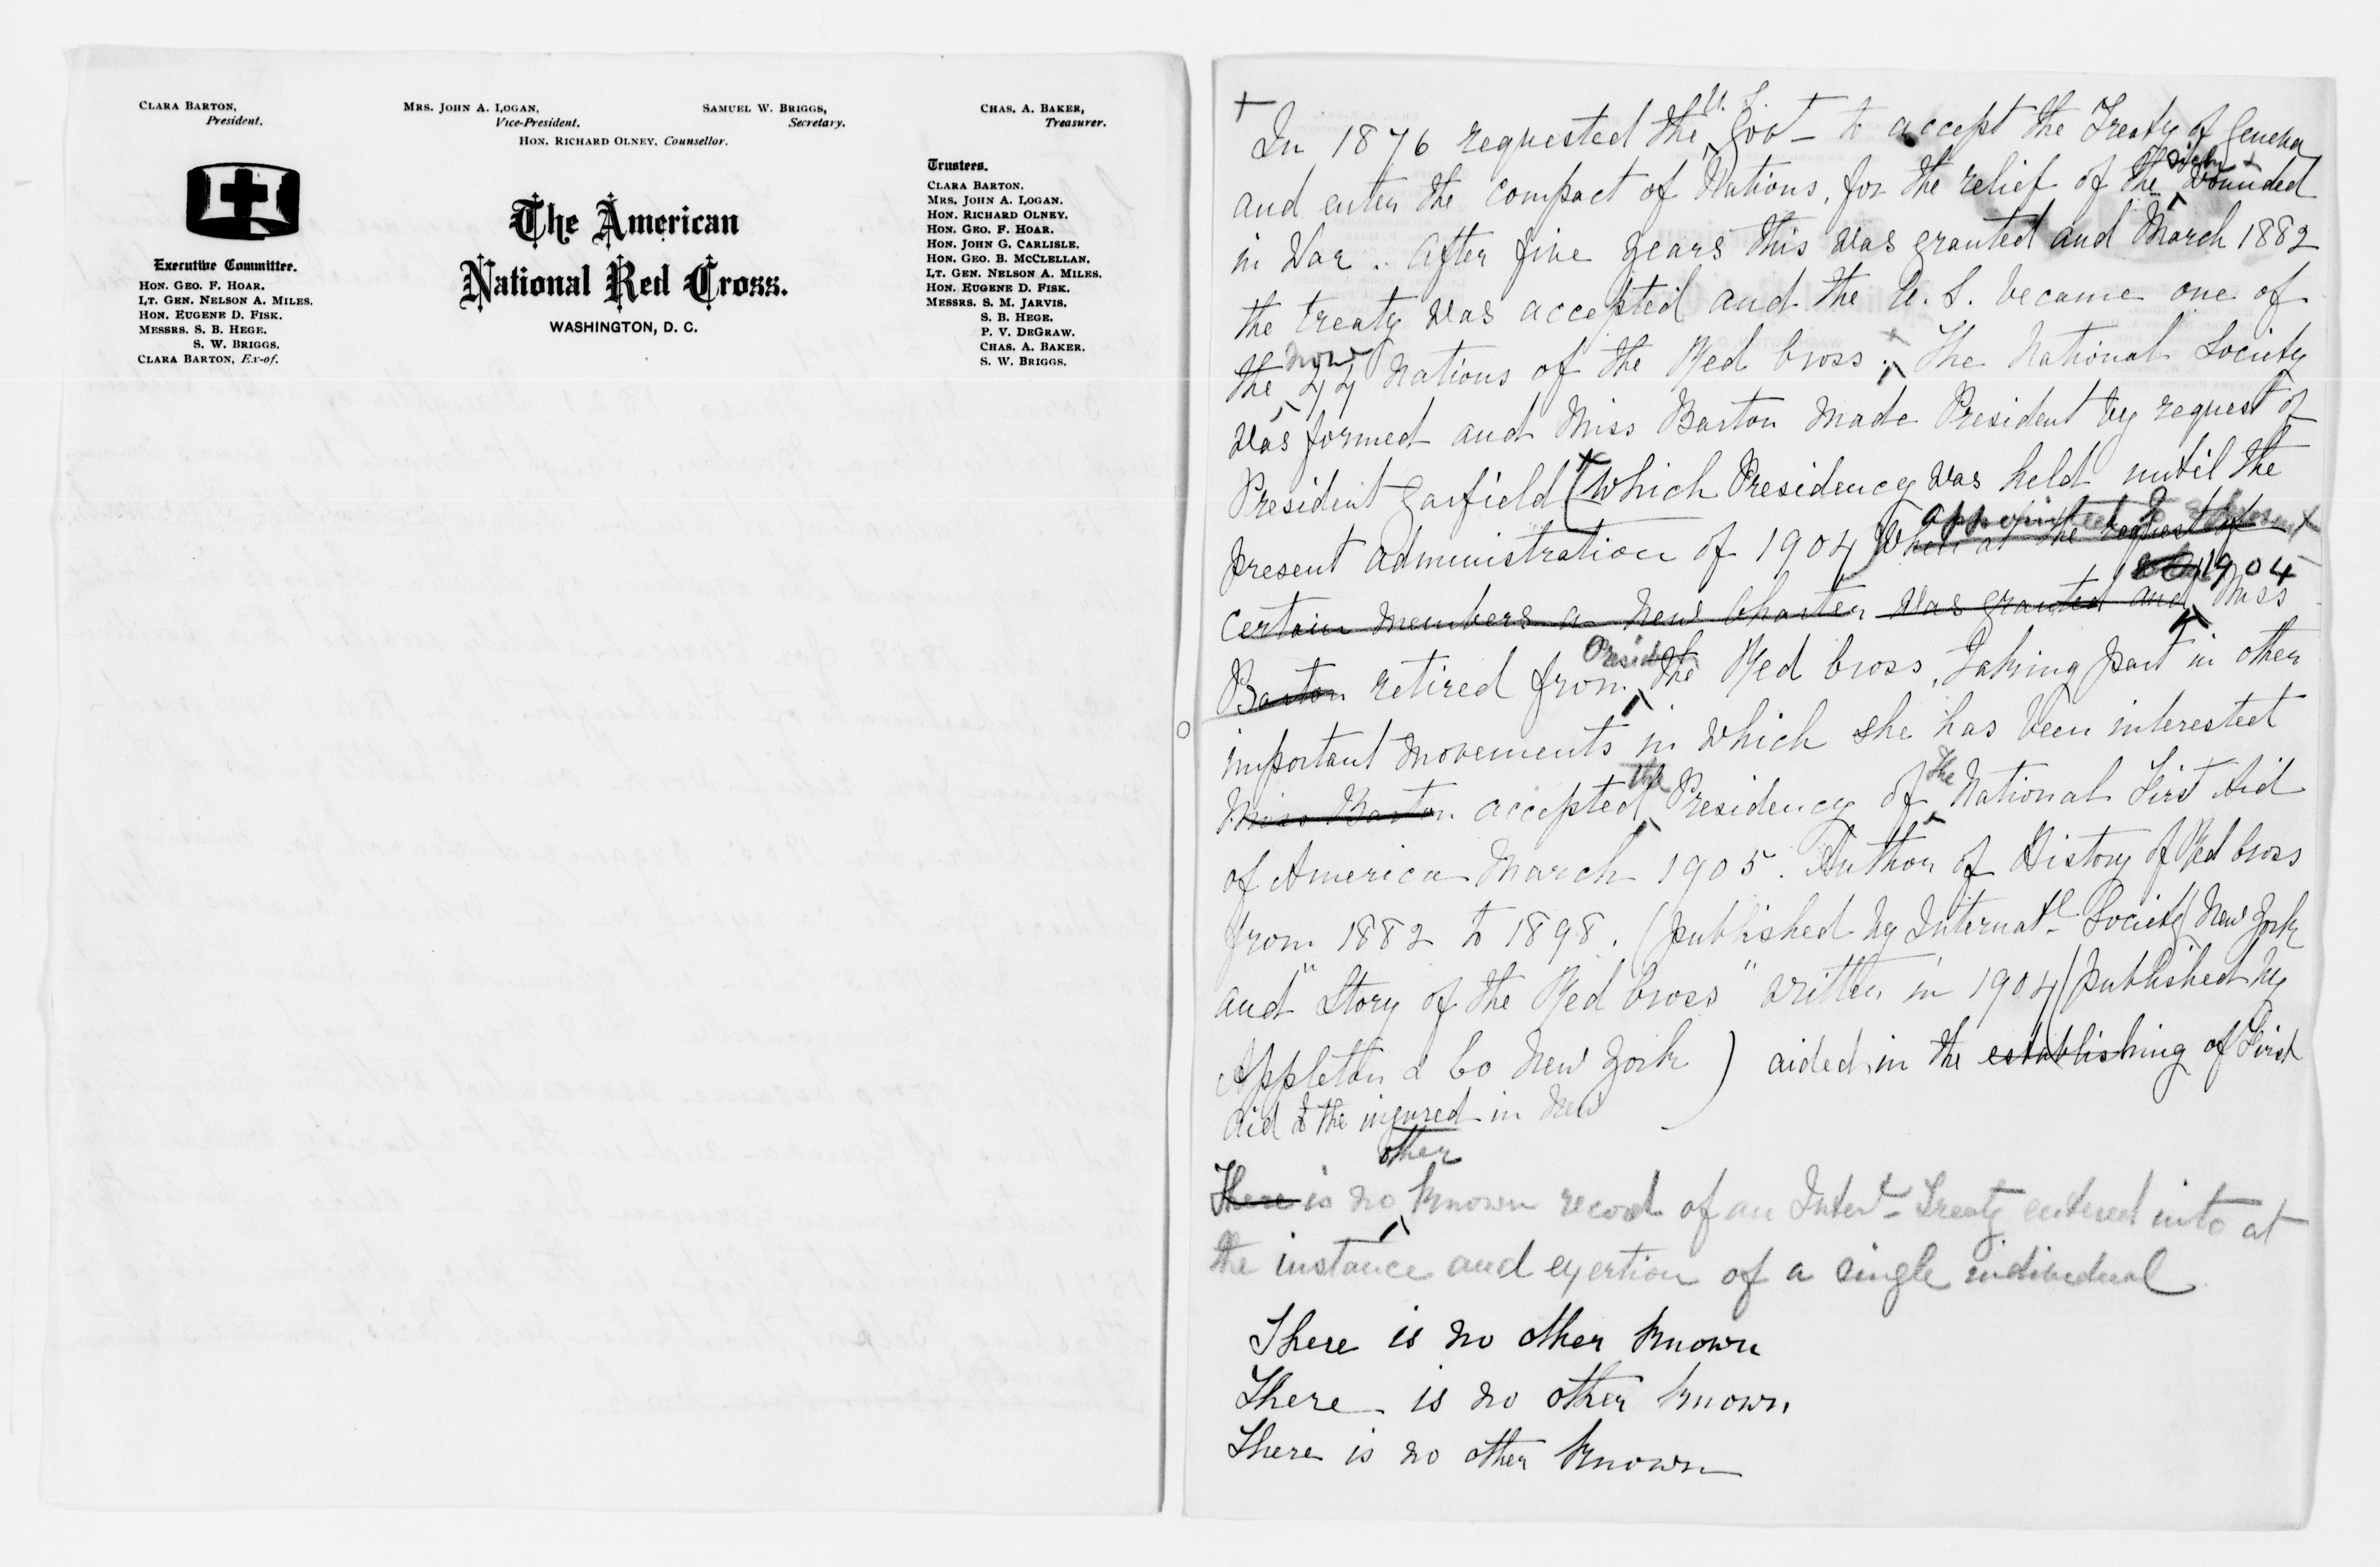 CLARA BARTON,
President.
MRS. JOHN A. LOGAN,
Vice-President.
SAMUEL W. BRIGGS,
Secretary.
CHAS. A. BAKER,
Treasurer.
HON. RICHARD OLNEY, Counsellor.
Executive Committee.
HON. GEO. F. HOAR.
LT. GEN. NELSON A. MILES.
HON. EUGENE D. FISK.
MESSRS. S. B. HEGE.
S. W. BRIGGS.
CLARA BARTON, Ex-of.
The American
National Red Cross.
WASHINGTON, D. C.
Trustees.
CLARA BARTON.
MRS. JOHN A. LOGAN.
HON. RICHARD OLNEY.
HON. GEO. F. HOAR.
HON. JOHN G. CARLISLE.
HON. GEO. B. MCCLELLAN.
LT. GEN. NELSON A. MILES.
HON. EUGENE D. FISK.
MESSRS. S. M. JARVIS.
S. B. HEGE.
P. V. DEGRAW.
CHAS. A. BAKER.
S. W. BRIGGS.
+
U. S.
In 1876 requested the Govt to accept the Treaty of Geneva
sick &
and enter the compact of Nations, for the relief of the wounded
in War. After five years this was granted and March 1882
the treaty was accepted and the U. S. became one of
now
the 44 nations of the Red Cross. The National Society
was formed and Miss Barton made President by request of
President Garfield (which Presidency was held until the
appointed
present administration of 1904) when at the request of
1904
certain members a new Charter was granted and Miss
Barton retired from the Red Cross, Taking part in other
important movements in which she has been interested
the the
Miss Barton accepted Presidency of National First Aid
of America March 1905. Author of History of Red Cross
from 1882 to 1898. (published by Internatl Society New York
and "Story of the Red Cross" written in 1904 (published by
Appleton & Co New York) aided in the establishing of First
Aid to the injured in New
other
There is no known record of an Intert Treaty entered into at
the instance and exertion of a single individual
There is no other known
There is no other known
There is no other known